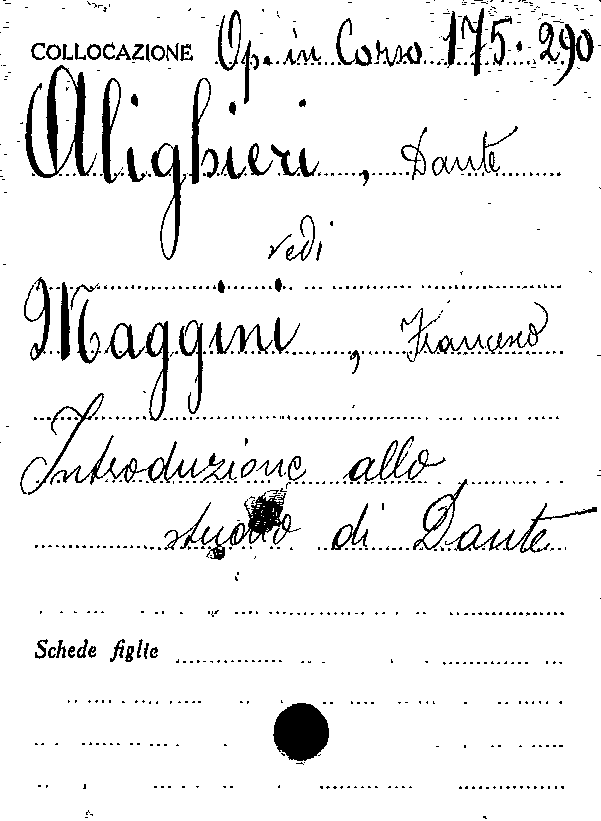 COLLOCAZIONE Op. in Corso 175. 290
Alighieri, Dante
vedi
Maggini, Francesco
Introduzione allo
studio di Dante
Schede figlie